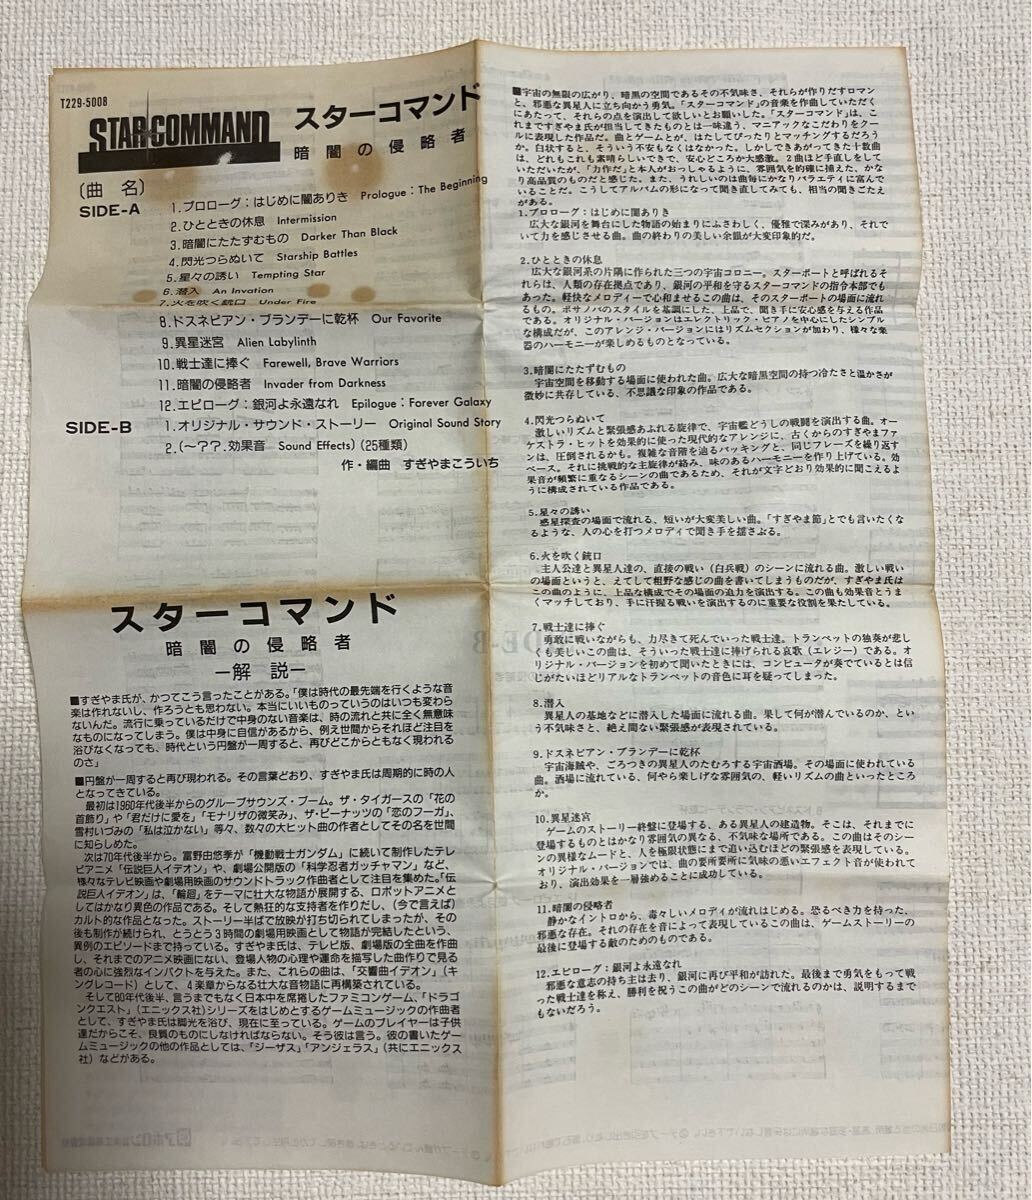 T229-5008
STAR COMMAND スターコマンド
暗闇の侵略者
〔曲 名〕
SIDE-A
1.プロローグ：はじめに闇ありき Prologue：The Beginning
2.ひとときの休息 Intermission
3.暗闇にたたずむもの Darker Than Black
4.閃光つらぬいて Starship Battles
5.星々の誘い Tempting Star
6.潜入 An Invation
7.火を吹く銃口 Under Fire
8.ドスネビアン・ブランデーに乾杯 Our Favorite
9.異星迷宮 Alien Labylinth
10.戦士達に捧ぐ Farewell, Brave Warriors
11.暗闇の侵略者 Invader from Darkness
12.エピローグ：銀河よ永遠なれ Epilogue：Forever Galaxy
SIDE-B
1.オリジナル・サウンド・ストーリー Original Sound Story
2.(〜??.効果音 Sound Effects)(25種類)
作・編曲 すぎやまこういち
スターコマンド
暗闇の侵略者
ー解 説ー
■すぎやま氏が、かつてこう言ったことがある。「僕は時代の最先端を行くような音
楽は作れないし、作ろうとも思わない。本当にいいものっていうのはいつも変わら
ないんだ。流行に乗っているだけで中身のない音楽は、時の流れと共に全く無意味
なものになってしまう。僕は中身に自信があるから、例え世間からそれほど注目を
浴びなくなっても、時代という円盤が一周すると、再びどこからともなく現われる
のさ」
■円盤が一周すると再び現われる。その言葉どおり、すぎやま氏は周期的に時の人
となってきている。
最初は1960年代後半からのグループサウンズ・ブーム。ザ・タイガースの「花の
首飾り」や「君だけに愛を」「モナリザの微笑み」、ザ・ピーナッツの「恋のフーガ」、
雪村いづみの「私は泣かない」等々、数々の大ヒット曲の作者としてその名を世間
に知らしめた。
次は70年代後半から。富野由悠季が「機動戦士ガンダム」に続いて制作したテレ
ビアニメ「伝説巨人イデオン」や、劇場公開版の「科学忍者ガッチャマン」など、
様々なテレビ映画や劇場用映画のサウンドトラック作曲者として注目を集めた。「伝
説巨人イデオン」は、「輪廻」をテーマに壮大な物語が展開する、ロボットアニメと
してはかなり異色の作品である。そして熱狂的な支持者を作りだし、（今で言えば）
カルト的な作品となった。ストーリー半ばで放映が打ち切られてしまったが、その
後も制作が続けられ、とうとう3時間の劇場用映画として物語が完結したという、
異例のエピソードまで持っている。すぎやま氏は、テレビ版、劇場版の全曲を作曲
し、それまでのアニメ映画にない、登場人物の心理や運命を描写した曲作りで見る
者の心に強烈なインパクトを与えた。また、これらの曲は、「交響曲イデオン」（キ
ングレコード）として、4楽章からなる壮大な音物語に再構築されている。
そして80年代後半、言うまでもなく日本中を席捲したファミコンゲーム、「ドラゴ
ンクエスト」（エニックス社）シリーズをはじめとするゲームミュージックの作曲者
として、すぎやま氏は脚光を浴び、現在に至っている。ゲームのプレイヤーは子供
達だからこそ、良質のものにしなければならない。そう彼は言う。彼の書いたゲー
ムミュージックの他の作品としては、「ジーザス」「アンジェラス」（共にエニックス
社）などがある。
■宇宙の無限の広がり、暗黒の空間であるその不気味さ、それらが作りだすロマン
と、邪悪な異星人に立ち向かう勇気。「スターコマンド」の音楽を作曲していただく
にあたって、それらの点を演出して欲しいとお願いした。「スターコマンド」は、こ
れまですぎやま氏が担当してきたものとは一味違う、マニアックなこだわりをクー
ルに表現した作品だ。曲とゲームとが、はたしてぴったりとマッチングするだろう
か。白状すると、そういう不安もなくはなかった。しかしできあがってきた十数曲
は、どれもこれも素晴らしいできで、安心どころか大感激。2曲ほど手直しをして
いただいたが、「力作だ」と本人がおっしゃるように、雰囲気を的確に捕えた、かな
り高品質のものだと感じた。また、うれしいのは曲毎にかなりバラエティに富んで
いることだ。こうしてアルバムの形になって聞き直してみても、相当の聞きごたえ
がある。
1.プロローグ：はじめに闇ありき
広大な銀河を舞台にした物語の始まりにふさわしく、優雅で深みがあり、それで
いて力を感じさせる曲。曲の終わりの美しい余韻が大変印象的だ。
2.ひとときの休息
広大な銀河系の片隅に作られた三つの宇宙コロニー。スターポートと呼ばれるそ
れらは、人類の存在拠点であり、銀河の平和を守るスターコマンドの指令本部でも
あった。軽快なメロディーで心和ませるこの曲は、そのスターポートの場面に流れ
るもの。ボサノバのスタイルを基調にした、上品で、聞き手に安心感を与える作品
である。オリジナル・バージョンはエレクトリック・ピアノを中心にしたシンプル
な構成だが、このアレンジ・バージョンにはリズムセクションが加わり、様々な楽
器のハーモニーが楽しめるものとなっている。
3.暗闇にたたずむもの
宇宙空間を移動する場面に使われた曲。広大な暗黒空間の持つ冷たさと温かさが
微妙に共存している、不思議な印象の作品である。
4.閃光つらぬいて
激しいリズムと緊張感あふれる旋律で、宇宙艦どうしの戦闘を演出する曲。オー
ケストラ・ヒットを効果的に使った現代的なアレンジに、古くからのすぎやまファ
ンは、圧倒されるかも。複雑な音階を辿るバッキングと、同じフレーズを繰り返す
ベース。それに挑戦的な主旋律が絡み、味のあるハーモニーを作り上げている。効
果音が頻繁に重なるシーンの曲であるため、それが文字どおり効果的に聞こえるよ
うに構成されている作品である。
5.星々の誘い
惑星探査の場面で流れる、短いが大変美しい曲。「すぎやま節」とでも言いたくな
るような、人の心を打つメロディで聞き手を揺さぶる。
6.火を吹く銃口
主人公達と異星人達の、直接の戦い（白兵戦）のシーンに流れる曲。激しい戦い
の場面というと、えてして粗野な感じの曲を書いてしまうものだが、すぎやま氏は
この曲のように、上品な構成でその場面の迫力を演出する。この曲も効果音とうま
くマッチしており、手に汗握る戦いを演出するのに重要な役割を果たしている。
7.戦士達に捧ぐ
勇敢に戦いながらも、力尽きて死んでいった戦士達。トランペットの独奏が悲し
くも美しいこの曲は、そういった戦士達に捧げられる哀歌（エレジー）である。オ
リジナル・バージョンを初めて聞いたときには、コンピュータが奏でているとは信
じがたいほどリアルなトランペットの音色に耳を疑ってしまった。
8.潜入
異星人の基地などに潜入した場面に流れる曲。果して何が潜んでいるのか、とい
う不気味さと、絶え間ない緊張感が表現されている。
9.ドスネビアン・ブランデーに乾杯
宇宙海賊や、ごろつきの異星人のたむろする宇宙酒場。その場面に使われている
曲。酒場に流れている、何やら楽しげな雰囲気の、軽いリズムの曲といったところ
か。
10.異星迷宮
ゲームのストーリー終盤に登場する、ある異星人の建造物。そこは、それまでに
登場するものとはかなり雰囲気の異なる、不気味な場所である。この曲はそのシー
ンの異様なムードと、人を極限状態にまで追い込むほどの緊張感を表現している。
オリジナル・バージョンでは、曲の要所要所に気味の悪いエフェクト音が使われて
おり、演出効果を一層強めることに成功している。
11.暗闇の侵略者
静かなイントロから、毒々しいメロディが流れはじめる。恐るべき力を持った、
邪悪な存在。それの存在を音によって表現しているこの曲は、ゲームストーリーの
最後に登場する敵のためのものである。
12.エピローグ：銀河よ永遠なれ
邪悪な意志の持ち主は去り、銀河に再び平和が訪れた。最後まで勇気をもって戦
った戦士達を称え、勝利を祝うこの曲がどのシーンで流れるのかは、説明するまで
もないだろう。